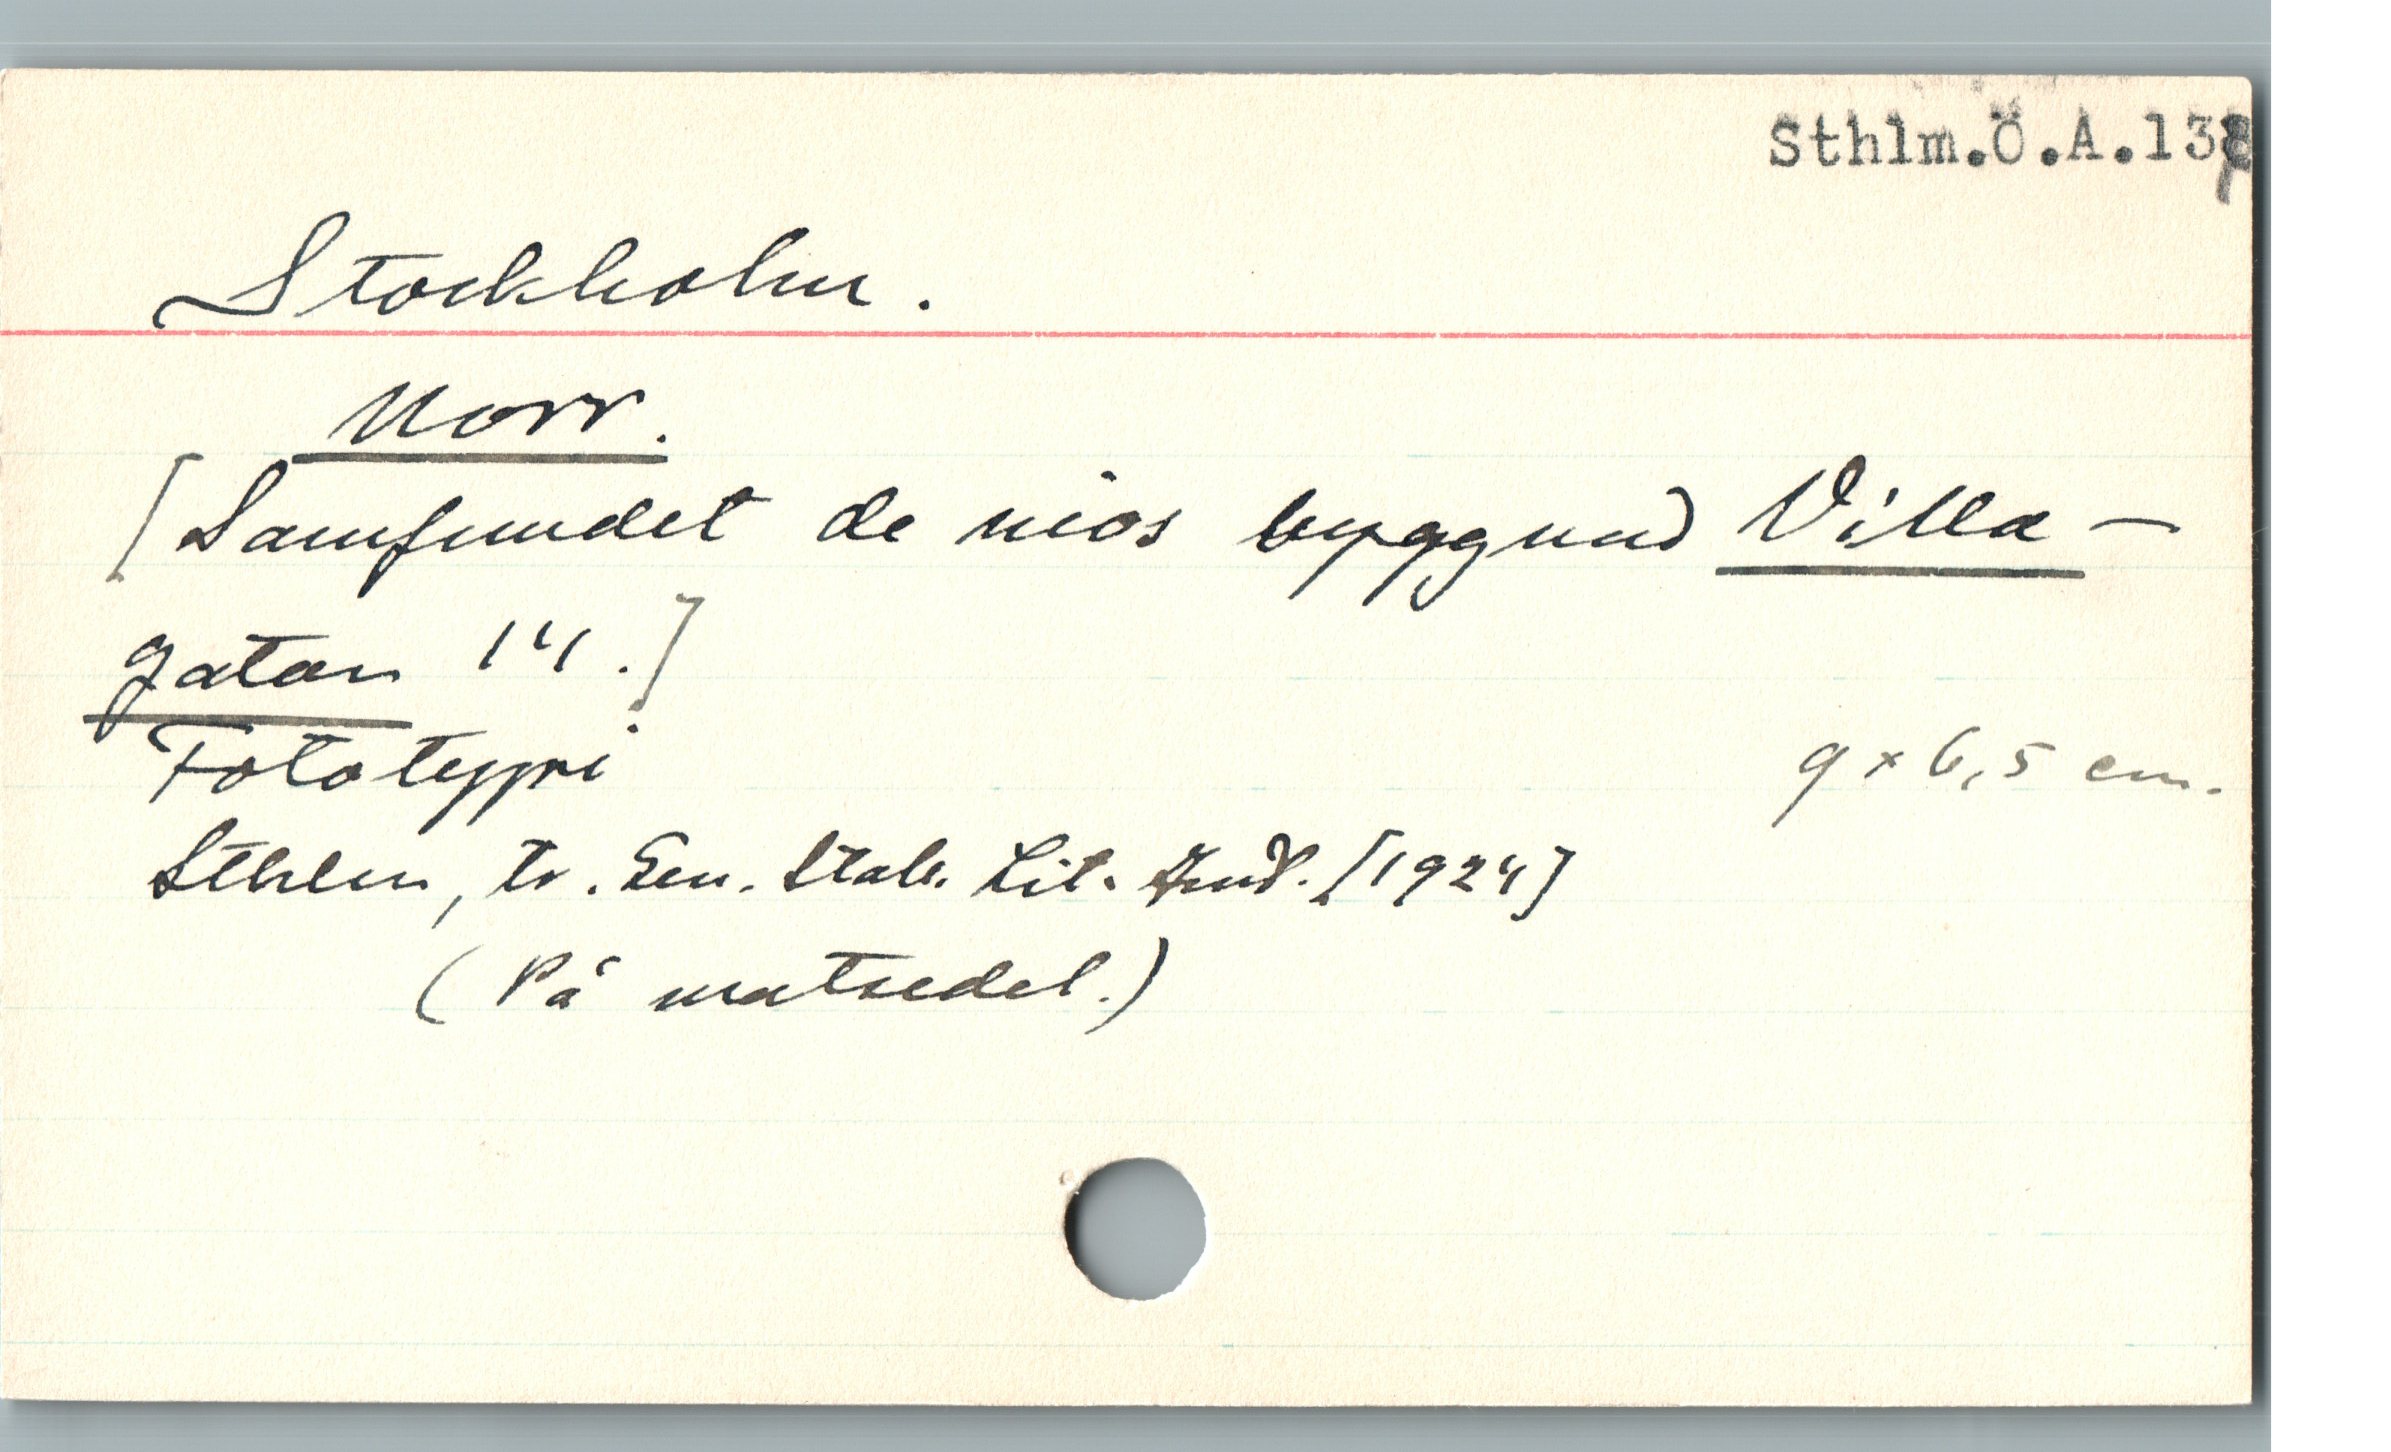 Sthlm.Ö.A.13
Stockholm.
Norr.
[Samfundet de nios byggnad Villa-
gatan 14.]
Fototypi 9 x 6,5 cm.
Sthlm, tr. Gen. Stab. Lit. Inst. [1924]
(På matsedel.)